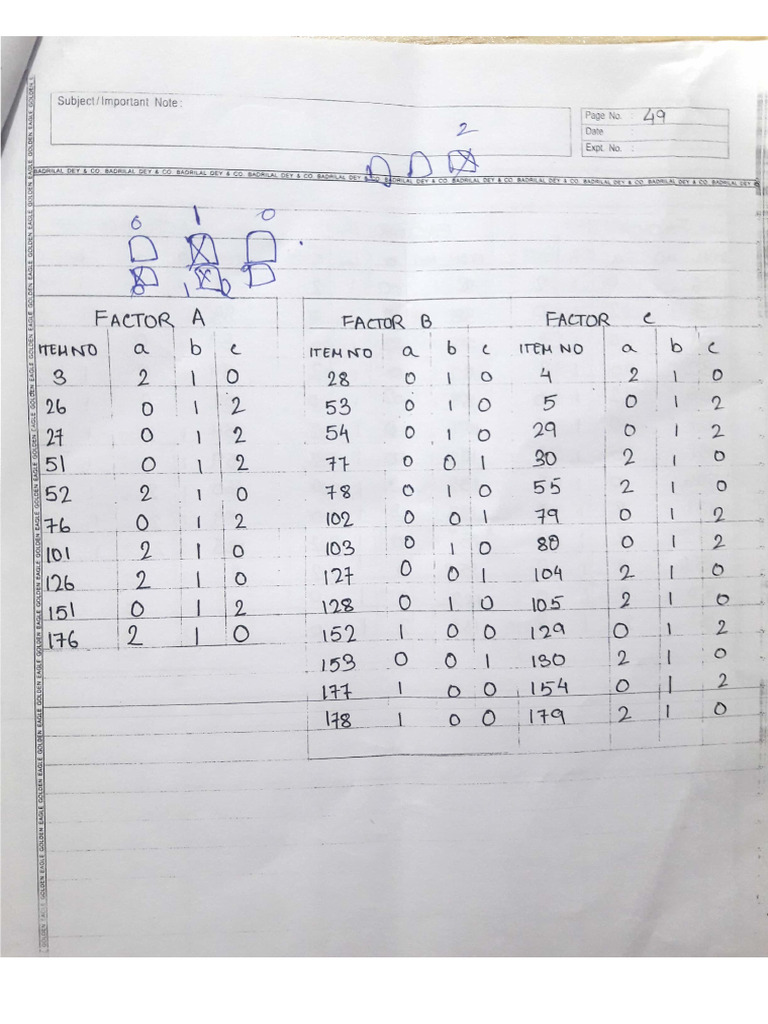 Subject/Important Note :
Page No. : 49
Date :
Expt. No. :
2
BADRILAL DEY & CO. BADRILAL DEY & CO. BADRILAL DEY & CO. BADRILAL DEY & CO. BADRILAL DEY & CO. BADRILAL DEY & CO. BADRILAL DEY & CO. BADRILAL DEY & CO.
0 1 0
0 1 0
FACTOR A FACTOR B FACTOR C
ITEM NO a b c ITEM NO a b c ITEM NO a b c
3 2 1 0 28 0 1 0 4 2 1 0
26 0 1 2 53 0 1 0 5 0 1 2
27 0 1 2 54 0 1 0 29 0 1 2
51 0 1 2 77 0 0 1 30 2 1 0
52 2 1 0 78 0 1 0 55 2 1 0
76 0 1 2 102 0 0 1 79 0 1 2
101 2 1 0 103 0 1 0 80 0 1 2
126 2 1 0 127 0 0 1 104 2 1 0
151 0 1 2 128 0 1 0 105 2 1 0
176 2 1 0 152 1 0 0 129 0 1 2
153 0 0 1 130 2 1 0
177 1 0 0 154 0 1 2
178 1 0 0 179 2 1 0